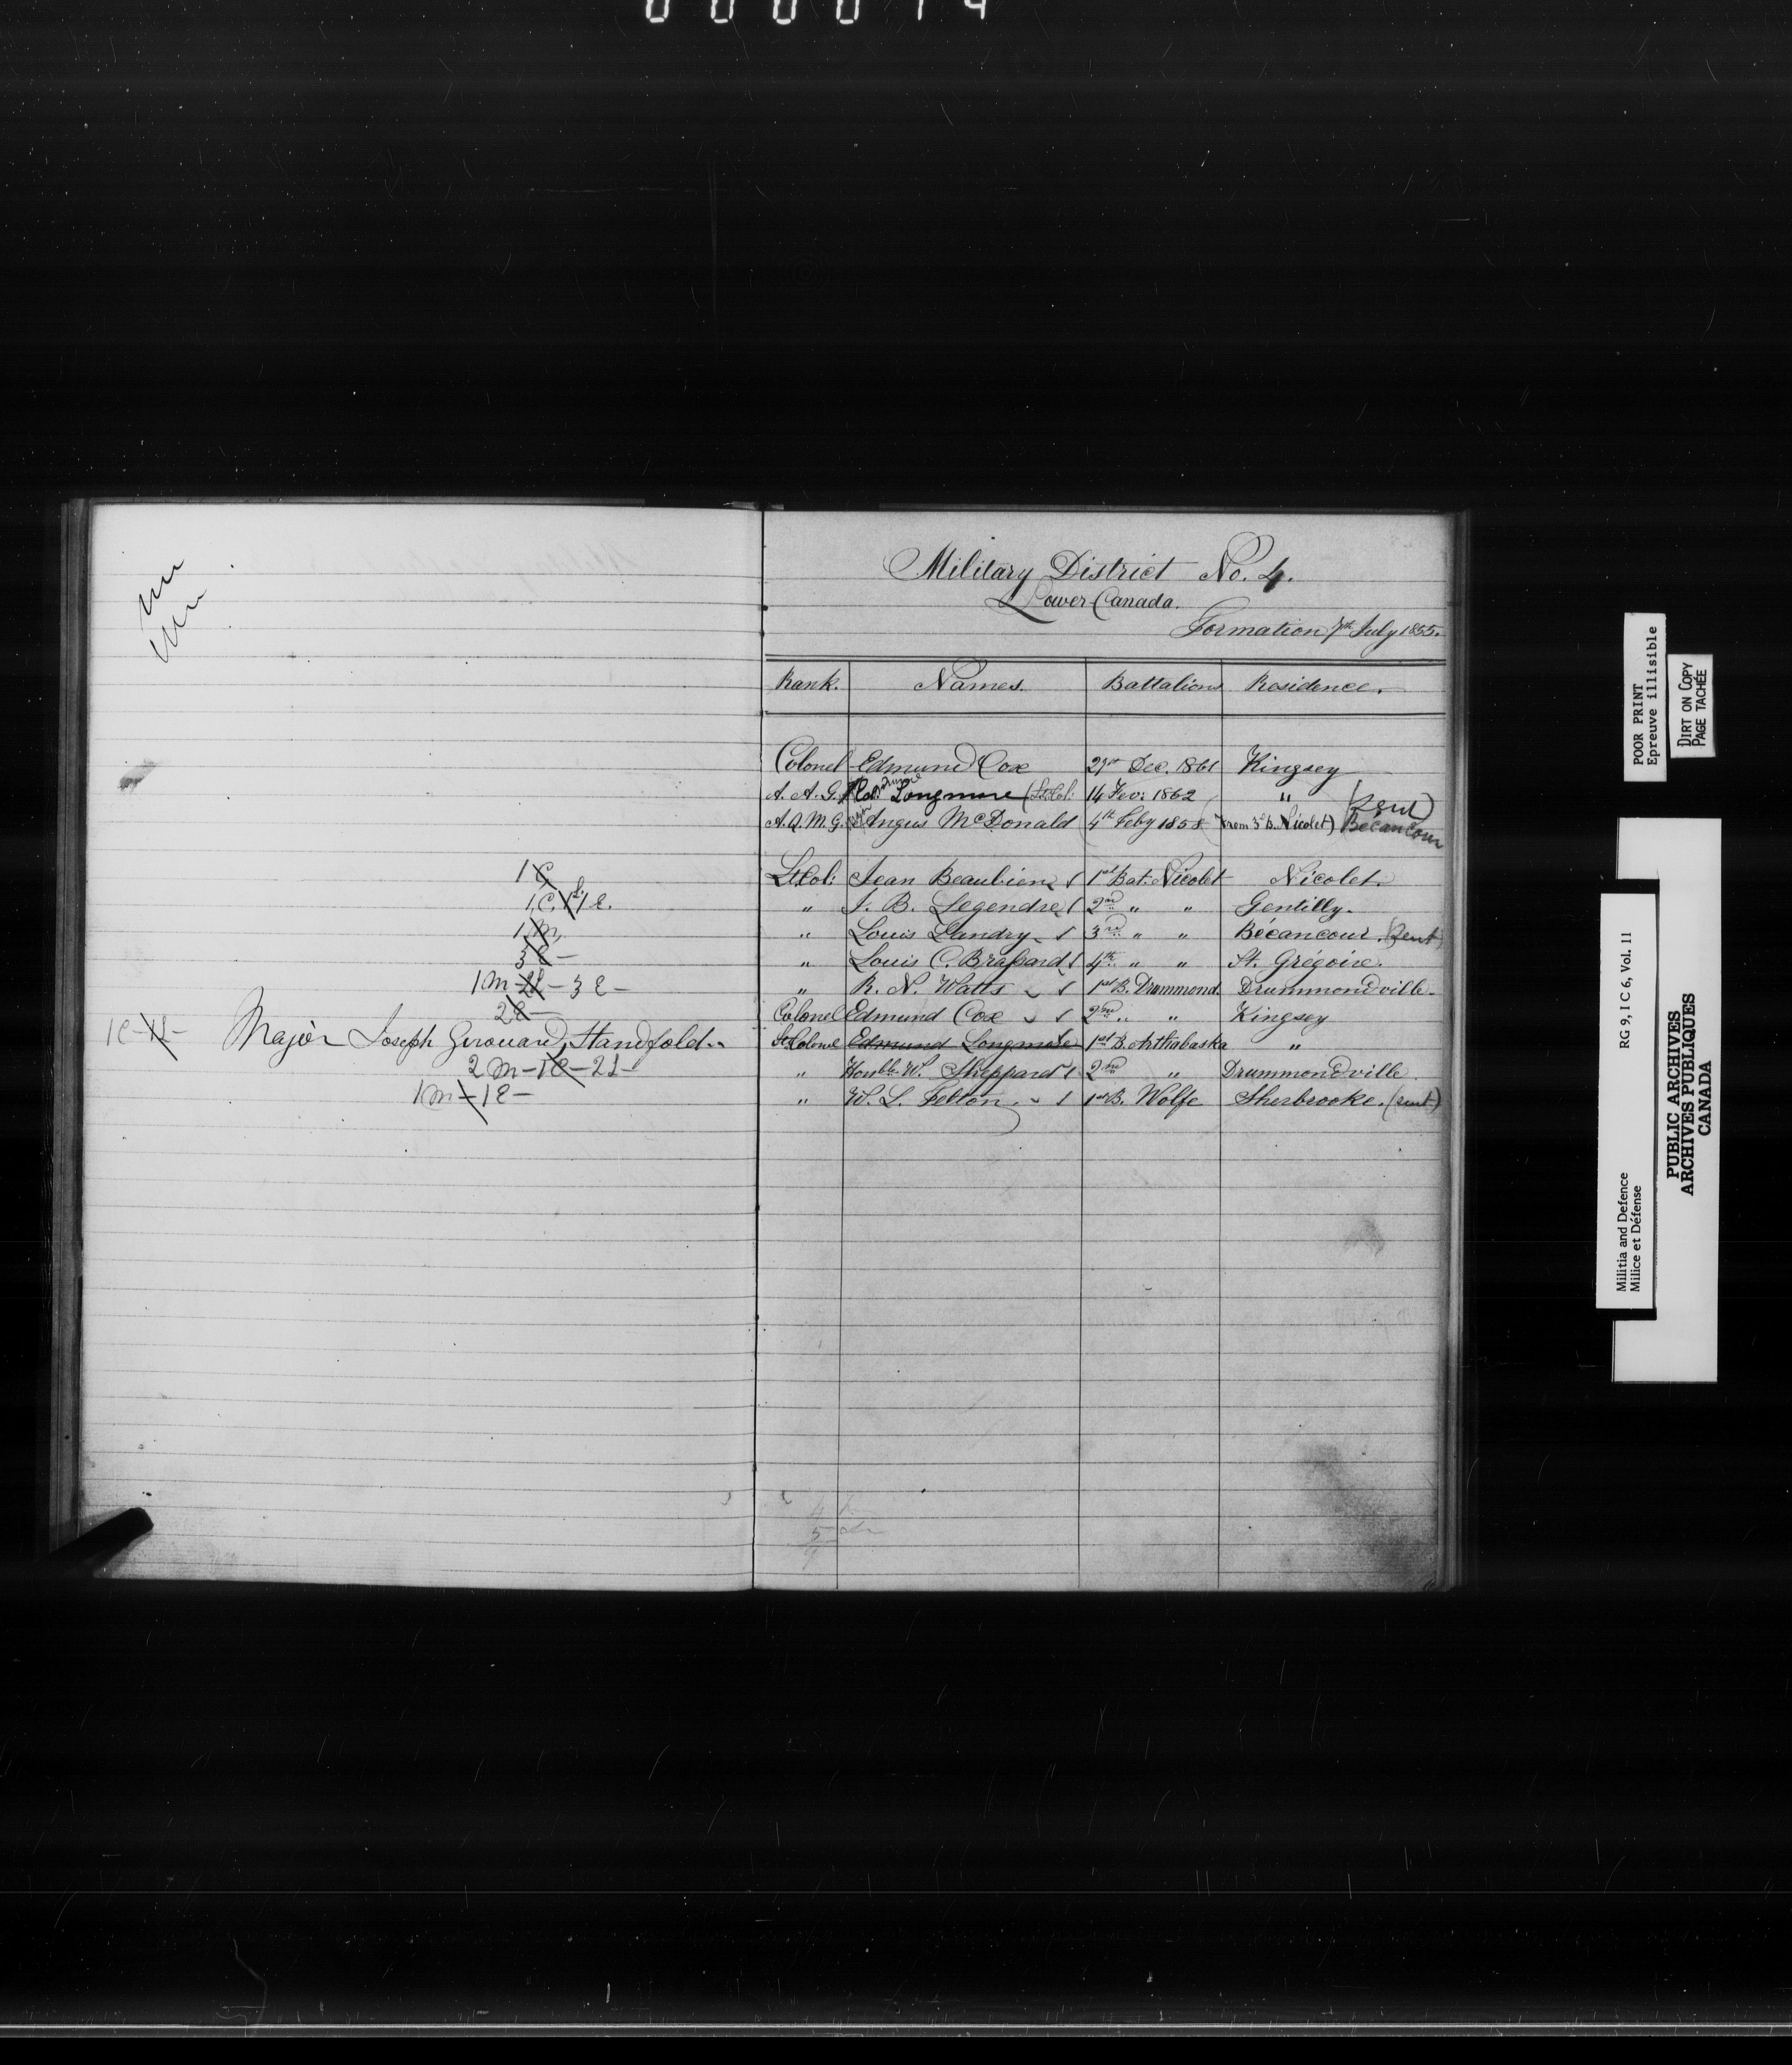 1 C
1 C. 1 L 1 E.
1 M
3 E -
1 M - 2L - 3 E -
2 E -
1 C - 1L - Major Joseph Girouard, Standfold.
2 M - 1 E - 2 L -
1 M - 1 E -
Military District No. 4.
Lower Canada.
Formation 7th July 1855.
Rank. Names. Battalions Residence.
Colonel Edmund Cox 27th Dec. 1861 Kingsey
A. A. G. Longmore (Lt. Col: 14 Fev: 1862 "
A. Q. M. G. Angus McDonald 4th Feby 1858 (from 3d B. Nicolet) Bécancour (sent)
Lt. Col: Jean Beaubien 1st Bat. Nicolet Nicolet.
" J. B. Legendre 2nd " " Gentilly.
" Louis Landry 3rd " " Bécancour. (sent)
" Louis C. Braßard 4th " " St. Grégoire.
" R. N. Watts 1st B. Drummond. Drummondville.
Colonel Edmund Cox 2nd " " Kingsey
Lt. Colonel Edmund Longmore 1st B. Arthabaska "
" Honble. W. Sheppard 2nd " Drummondville.
" W. L. Felton. 1st B. Wolfe Sherbrooke. (sent)
4
5
9
POOR PRINT
Epreuve illisible
DIRT ON COPY
PAGE TACHÉE
RG 9, I C 6, Vol. 11
Militia and Defence
Milice et Défense
PUBLIC ARCHIVES
ARCHIVES PUBLIQUES
CANADA